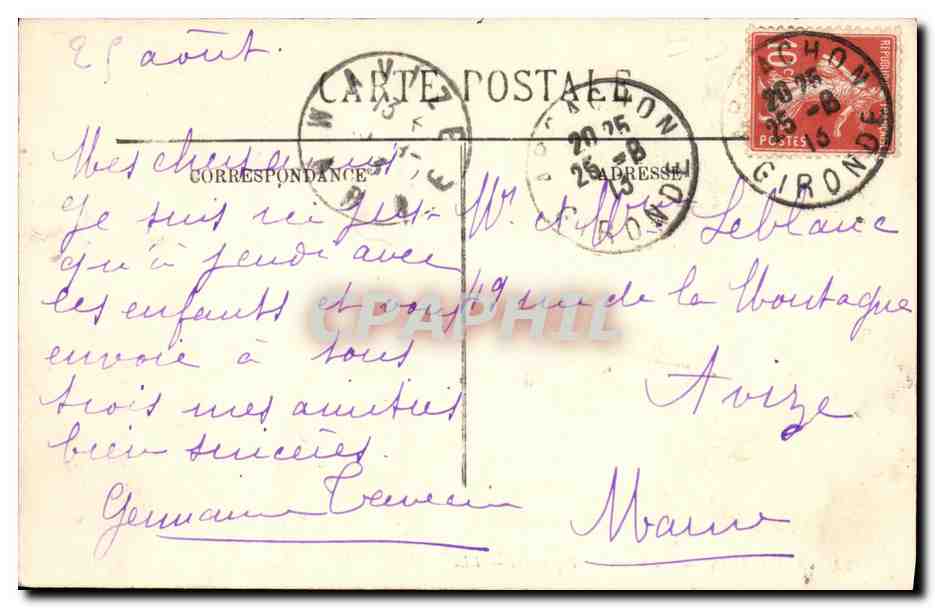 25 août.
CARTE POSTALE
CORRESPONDANCE
ADRESSE
Mes chers amis
Je suis ici jus-
qu'à jeudi avec
les enfants et vous
envoie à tous
trois mes amitiés
bien sincères.
Germaine
Mr et Mme Leblanc
49 rue de la Montagne
Avize
Marne
AVIZE
MARNE
13
ARCACHON
20 25
25 -8
13
GIRONDE
ARCACHON
20 25
25 -8
13
GIRONDE
10c
POSTES
CPAPHIL